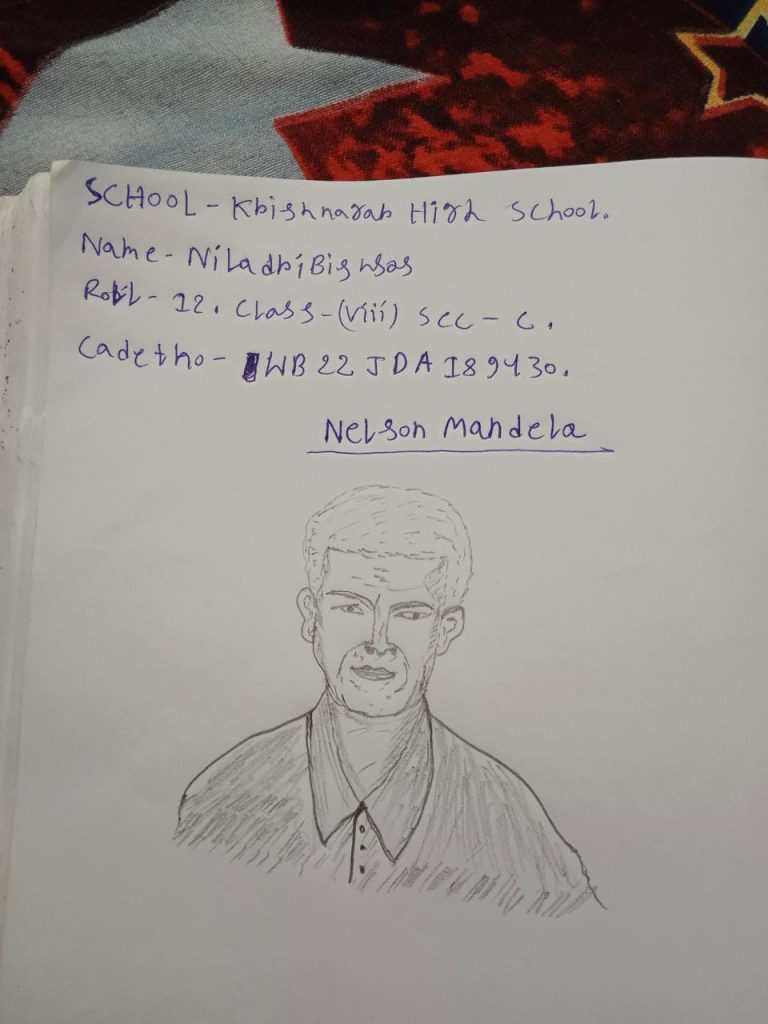 SCHOOL - Kbishnagab High School.
Name - Niladbi Biswas
Roll - 12. Class - (viii) Sec - C.
Cadet no - WB 22 JDA 189430.
Nelson Mandela